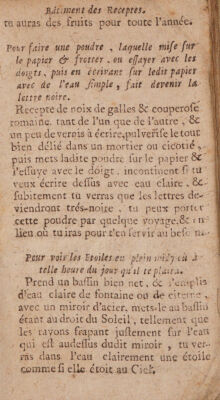 Bâtiment des Receptes.
tu auras des fruits pour toute l'année.
Pour faire une poudre, laquelle mise sur
le papier & frotter, ou essayer avec les
doigts, puis en écrivant sur ledit papier
avec de l'eau simple, fait devenir la
lettre noire.
Recepte de noix de galles & couperose
romaine, tant de l'un que de l'autre, &
un peu de verois à écrire, pulverise le tout
bien délié dans un mortier ou
puis mets ladite poudre sur le papier &
l'essuye avec le doigt, incontinent si tu
veux écrire dessus avec eau claire, &
subitement tu verras que les lettres de-
viendront très-noire, tu peux porter
cette poudre par quelque voyage, & en
lieu où tu iras pour t'en servir au
Pour voir les Etoiles en plein midy où à
telle heure du jour qu'il te plaira.
Prend un bassin bien net, & l'emplis
d'eau claire de fontaine ou de citerne,
avec un miroir d'acier, mets-le au bassin
étant au droit du Soleil, tellement que
les rayons frapant justement sur l'eau
qui est audessus dudit miroir, tu ver-
ras dans l'eau clairement une étoile
comme si elle étoit au Ciel.